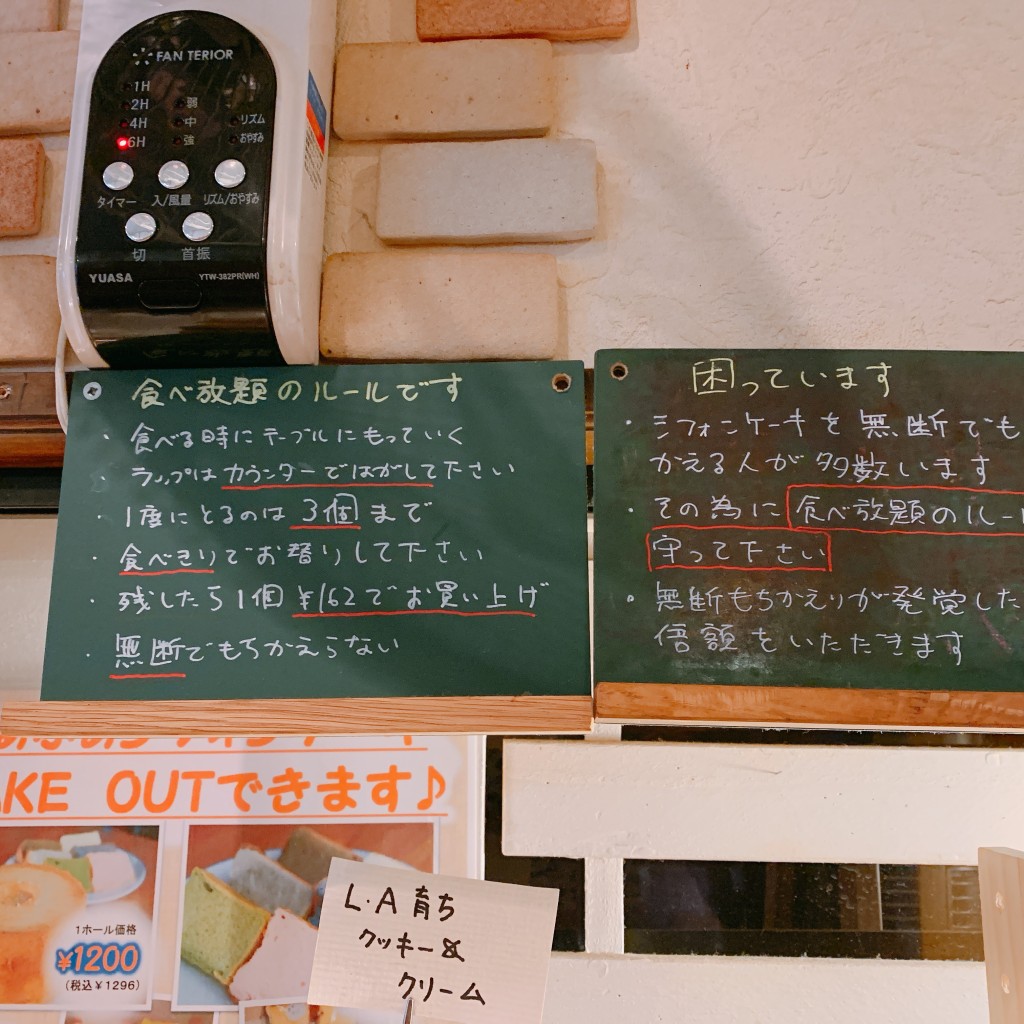 FAN TERIOR
1H
2H 弱
4H 中 リズム
6H 強 おやすみ
タイマー 入/風量 リズム/おやすみ
切 首振
YUASA YTW-382PR(WH)
食べ放題のルールです
・食べる時にテーブルにもっていく
・ラップはカウンターではがして下さい
・1度にとるのは3個まで
・食べきりでお替りして下さい
・残したら1個¥162でお買い上げ
・無断でもちかえらない
困っています
・シフォンケーキを無断でも
かえる人が多数います
・その為に食べ放題のルー
守って下さい
・無断もちかえりが発覚した
倍額をいただきます
AKE OUTできます♪
1ホール価格
¥1200
(税込¥1296)
L.A育ち
クッキー&
クリーム